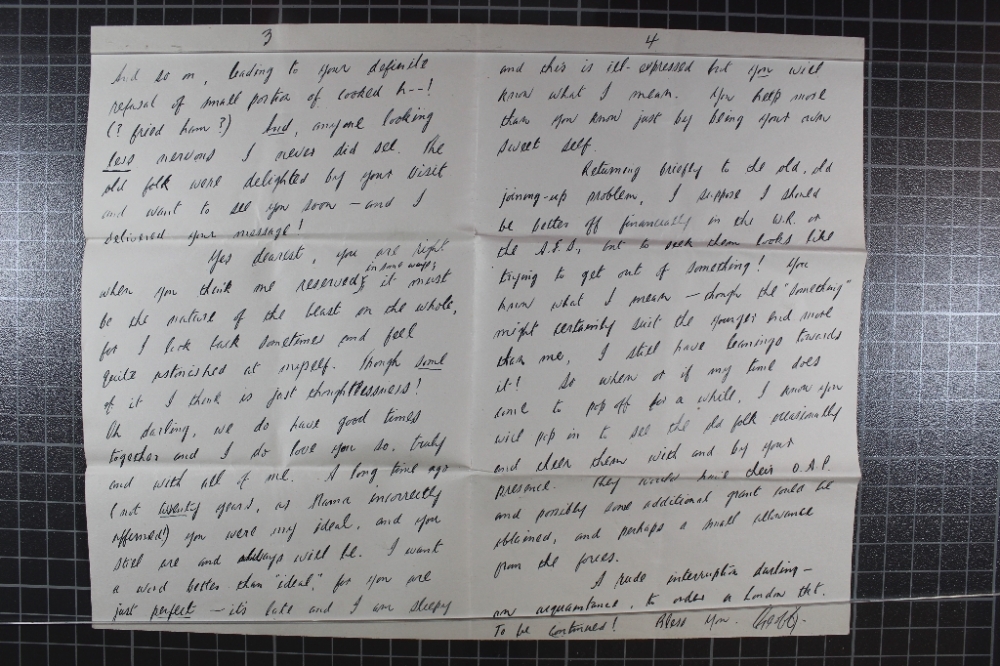 3
And so on, leading to your definite
refusal of small portion of cooked h--!
(? fried ham?) And, anyone looking
less nervous I never did see. The
old folk were delighted by your visit
and want to see you soon – and I
delivered your message!
Yes dearest, you are right
when you think me reserved in some ways; it must
be the nature of the beast on the whole,
for I look back sometimes and feel
quite astonished at myself. Though some
of it I think is just thoughtlessness!
Oh darling, we do have good times
together and I do love you so, truly
and with all of me. A long time ago
(not twenty years, as Mama incorrectly
affirmed!) you were my ideal, and you
still are and always will be. I want
a word better than "ideal", for you are
just perfect – it's late and I am sleepy
4
and this is ill-expressed but you will
know what I mean. You help more
than you know just by being your own
sweet self.
Returning briefly to the old, old
joining-up problem, I suppose I should
be better off financially in the W.R. or
the A.F.S., but to seek them looks like
trying to get out of something! You
know what I mean – though the "something"
might certainly suit the younger end more
than me, I still have leanings towards
it! So when or if my time does
come to pop off for a while, I know you
will pop in to see the old folk occasionally
and cheer them with and by your
presence. They would have their O.A.P.
and possibly some additional grant could be
obtained, and perhaps a small allowance
from the forces.
A rude interruption darling –
an acquaintance, to order a London tkt.
To be continued! Bless you.